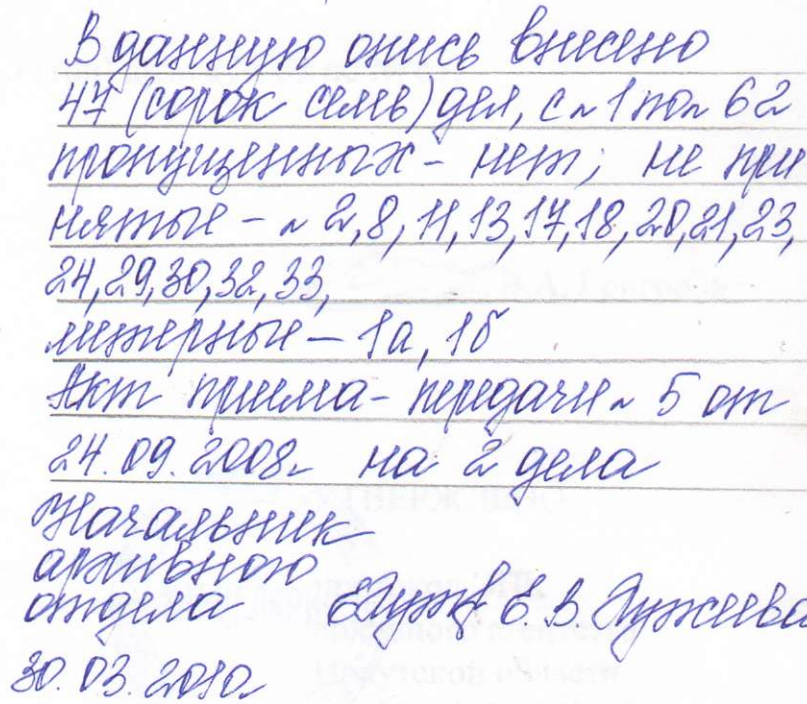 В данную опись внесено
47 (сорок семь) дел, с ~ 1 по ~ 62
пропущенных - нет; не при
нятые - ~ 2, 8, 11, 13, 17, 18, 20, 21, 23,
24, 29, 30, 32, 33,
литерные - 1а, 1б
Акт приема-передачи ~ 5 от
24.09.2008г на 2 дела
Начальник
архивного
отдела Е.В. Лужнева
30.03.2010г